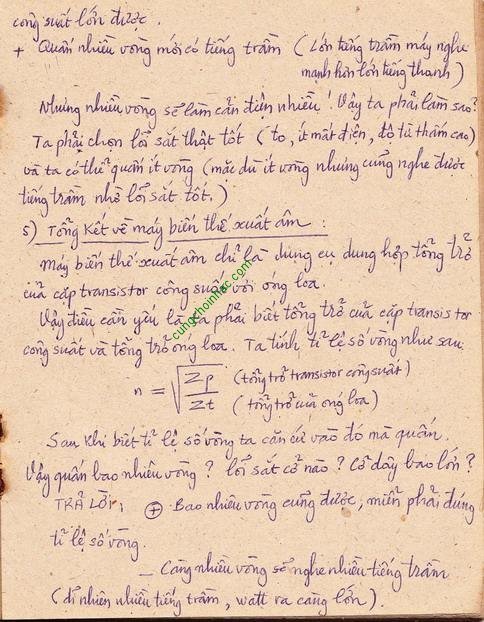 công suất lớn được.
+ Quấn nhiều vòng mới có tiếng trầm (Lớn tiếng trầm máy nghe
mạnh hơn lớn tiếng thanh)
Nhưng nhiều vòng sẽ làm cản điện nhiều! Vậy ta phải làm sao?
Ta phải chọn lõi sắt thật tốt (to, ít mất điện, độ từ thấm cao)
và ta có thể quấn ít vòng (mặc dù ít vòng nhưng cũng nghe được
tiếng trầm nhờ lõi sắt tốt.)
5) Tổng kết về máy biến thế xuất âm:
Máy biến thế xuất âm chỉ là dụng cụ dung hợp tổng trở
của cặp transistor công suất với ống loa.
Vậy điều cần yếu là ta phải biết tổng trở của cặp transistor
công suất và tổng trở ống loa. Ta tính tỉ lệ số vòng như sau:
n = √(Zp/Zt) (tổng trở transistor công suất)
(tổng trở của ống loa)
Sau khi biết tỉ lệ số vòng ta căn cứ vào đó mà quấn.
Vậy quấn bao nhiêu vòng? lõi sắt cỡ nào? Cỡ dây bao lớn?
TRẢ LỜI: + Bao nhiêu vòng cũng được, miễn phải đúng
tỉ lệ số vòng.
_ Càng nhiều vòng sẽ nghe nhiều tiếng trầm
(dĩ nhiên nhiều tiếng trầm, watt ra càng lớn).
cungchoinhac.com